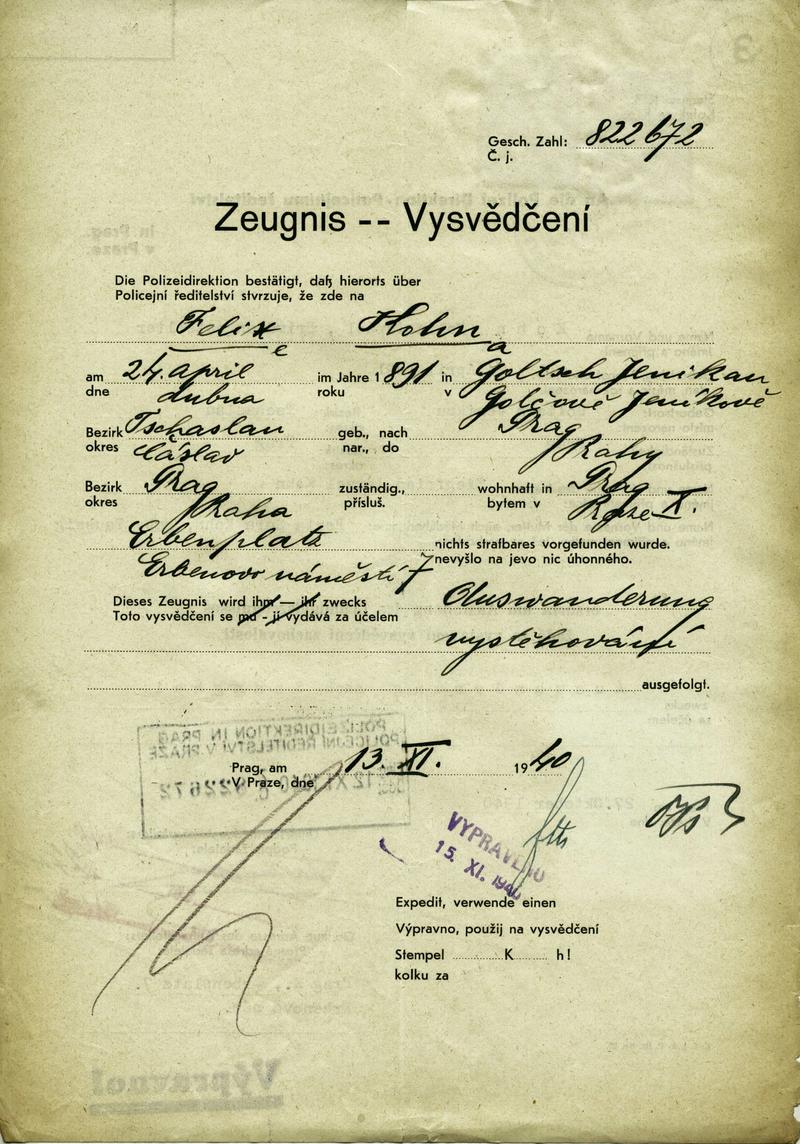 Gesch. Zahl: 822672
Č. j.
Zeugnis -- Vysvědčení
Die Polizeidirektion bestätigt, daß hierorts über
Policejní ředitelství stvrzuje, že zde na
Felix Kohn
e a
am 24. april im Jahre 1891 in Goltsch Jenikau
dne dubna roku v Golčově Jeníkově
Bezirk Tschaslau geb., nach Prag
okres Čáslav nar., do Prahy
Bezirk Prag zuständig., wohnhaft in Prag
okres Praha přísluš. bytem v Praze X.
Erbenplatz nichts strafbares vorgefunden wurde.
Erbenovo náměstí 7 nevyšlo na jevo nic úhonného.
Dieses Zeugnis wird ihm — ihr zwecks Auswanderung
Toto vysvědčení se mu - jí vydává za účelem
vystěhování
ausgefolgt.
POLIZEIDIREKTION IN PRAG
POLICEJNÍ ŘEDITELSTVÍ V PRAZE
Prag, am 13. XI. 1940
V Praze, dne
822672
VYPRAVENO
15. XI. 1940
Expedit, verwende einen
Výpravno, použij na vysvědčení
Stempel K h!
kolku za
Výpravno!